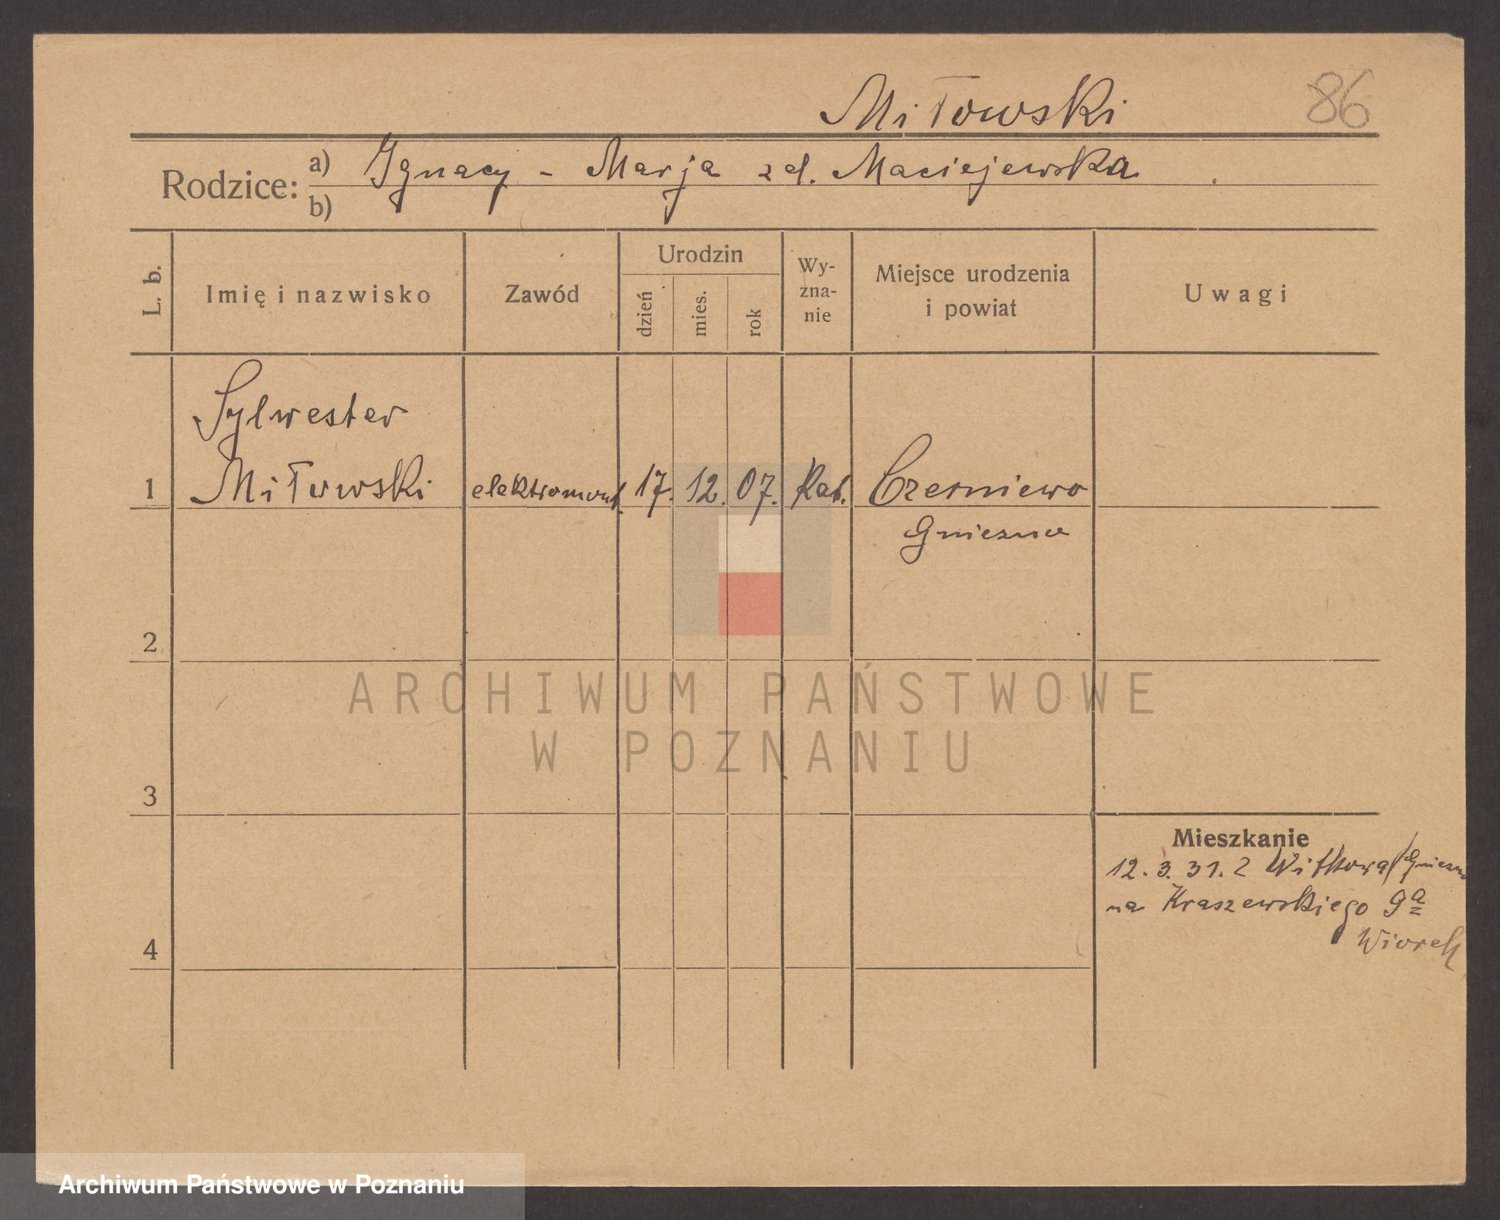 Miłowski 86
Rodzice: a) Ignacy - Marja zd. Maciejewska
b)
L. b. Imię i nazwisko Zawód Urodzin dzień mies. rok Wyzna-nie Miejsce urodzenia i powiat Uwagi
Sylwester
1 Miłowski elektromont. 17. 12. 07. Kat. Czerniewo
Gniezno
2
ARCHIWUM PAŃSTWOWE
W POZNANIU
3
Mieszkanie
12. 3. 31. z Witkowa/Gniezno
na Kraszewskiego 9a
Wiorek
4
Archiwum Państwowe w Poznaniu